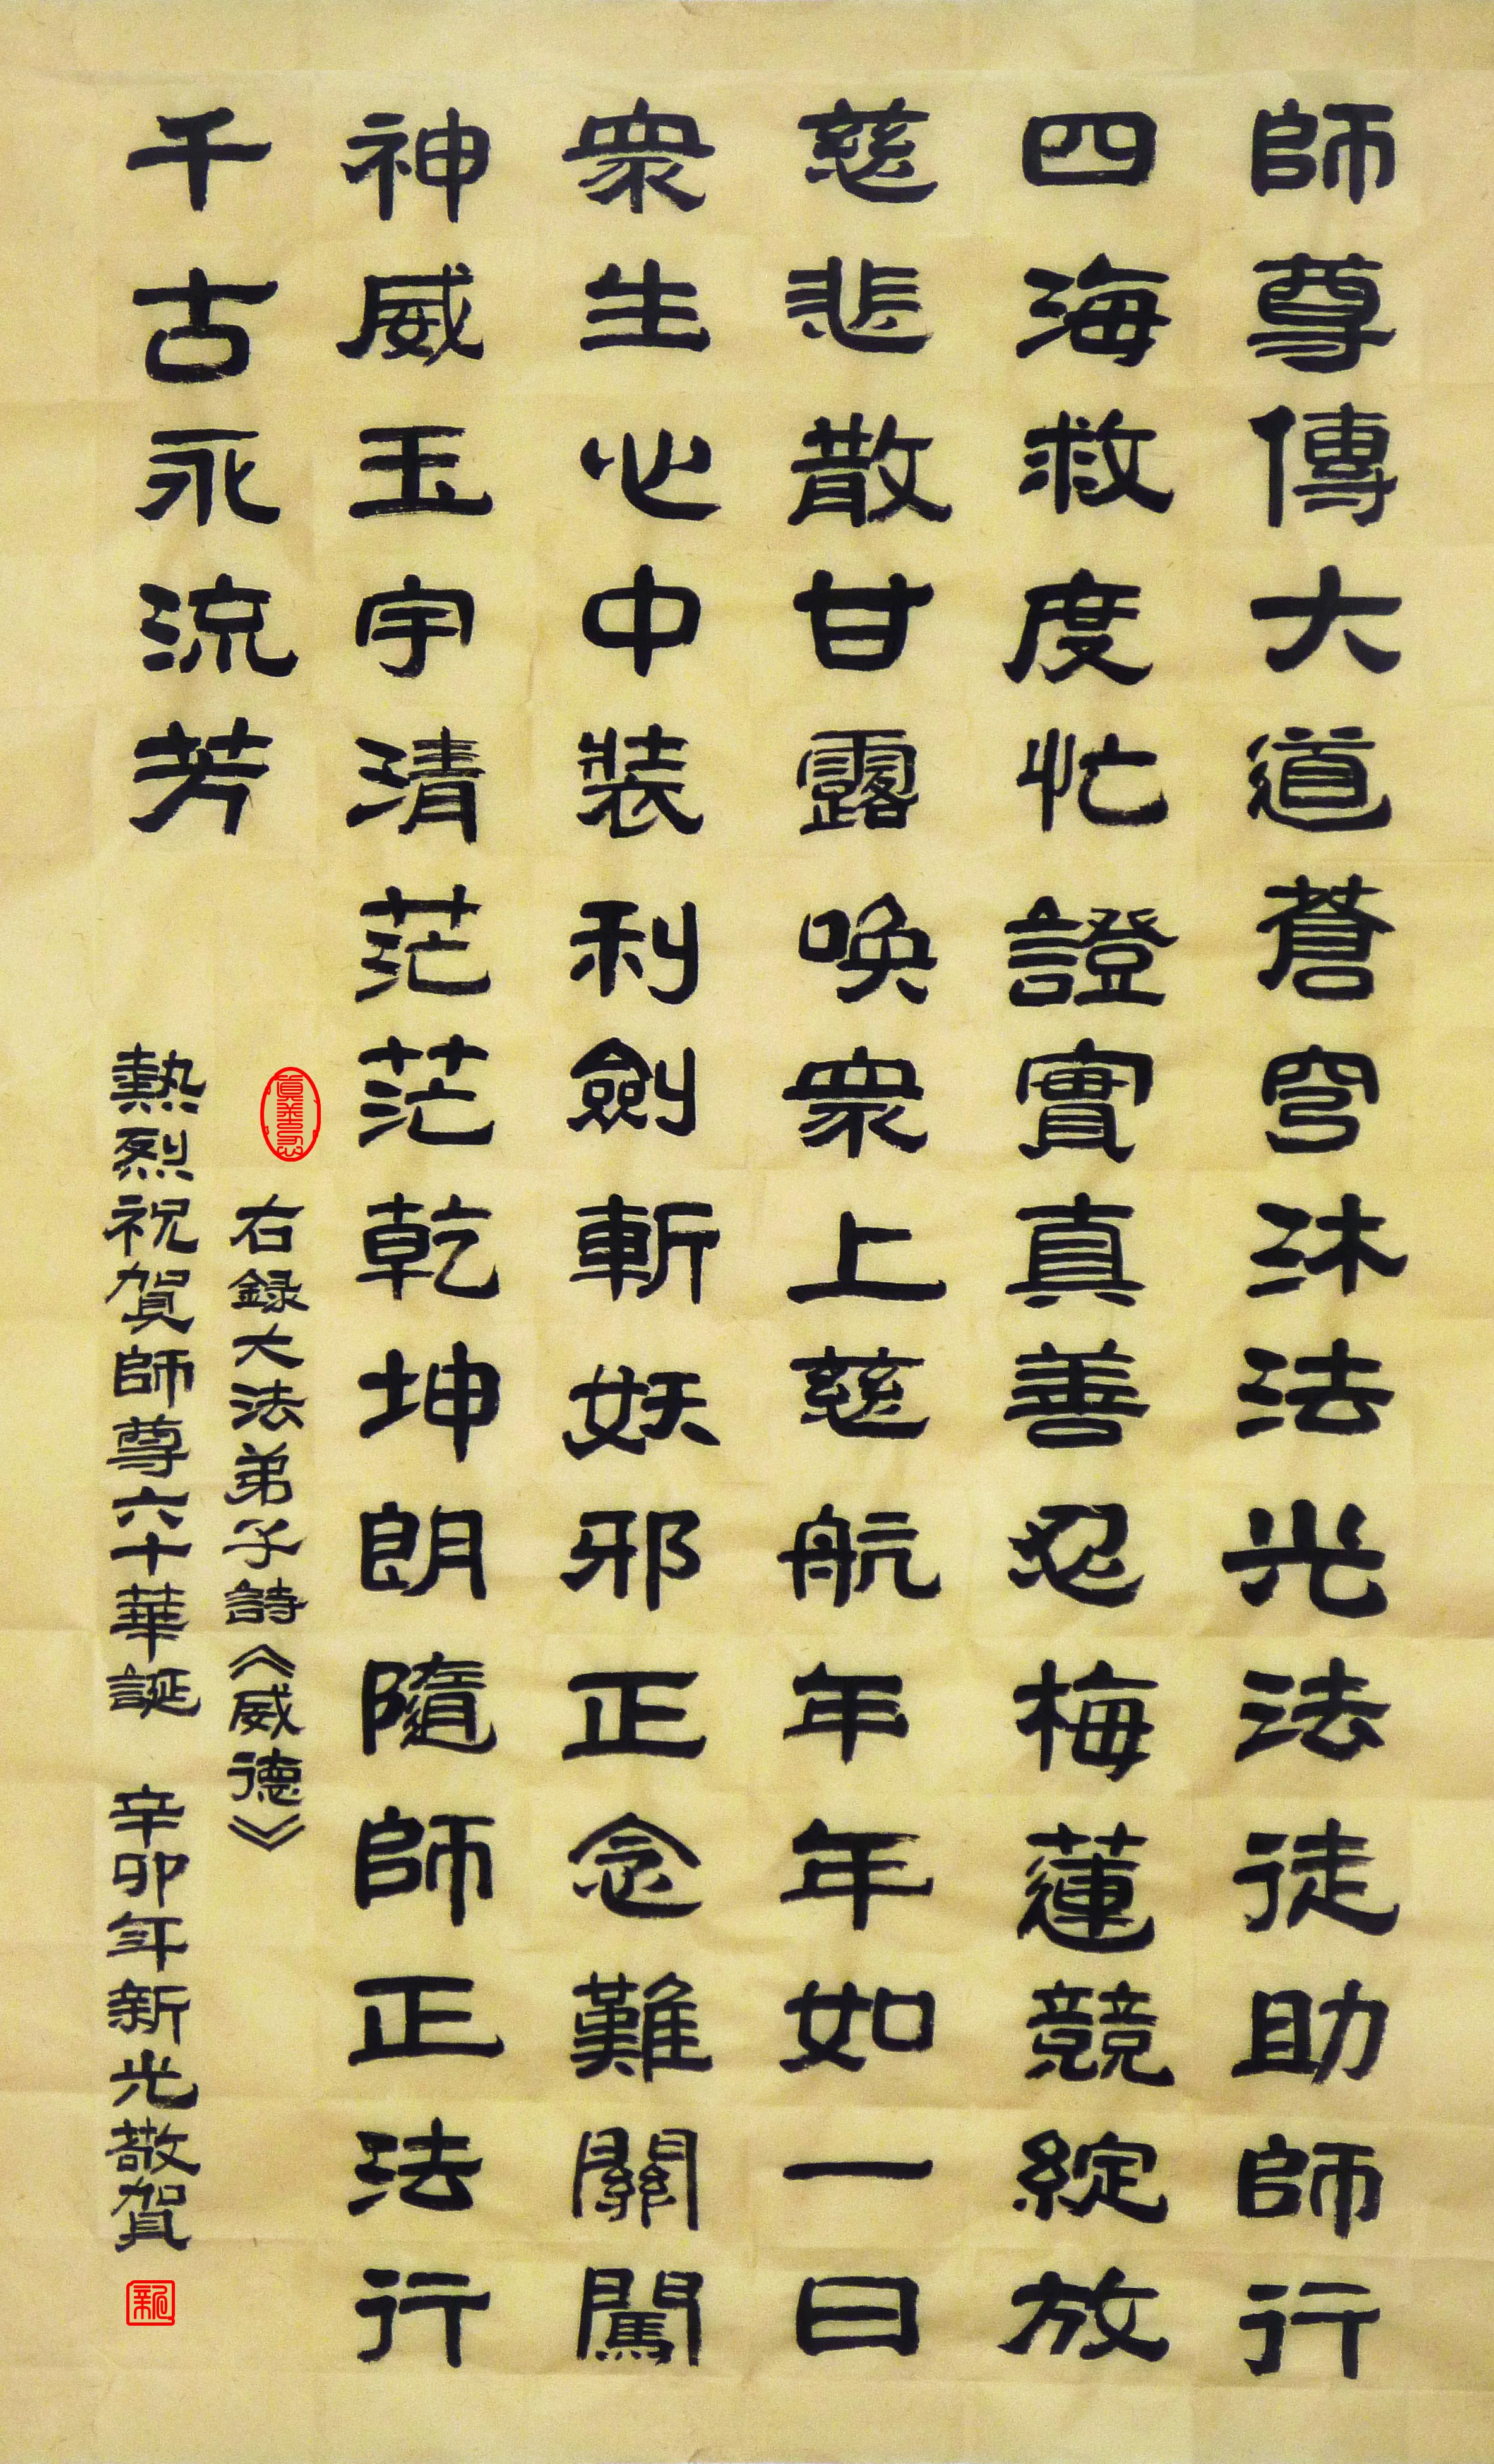 師尊傳大道蒼穹沐法光法徒助師行
四海救度忙證實真善忍梅蓮競綻放
慈悲散甘露喚眾上慈航年年如一日
眾生心中裝利劍斬妖邪正念難關闖
神威玉宇清茫茫乾坤朗隨師正法行
千古永流芳
真善忍
右録大法弟子詩《威德》
熱烈祝賀師尊六十華誕 辛卯年新光敬賀